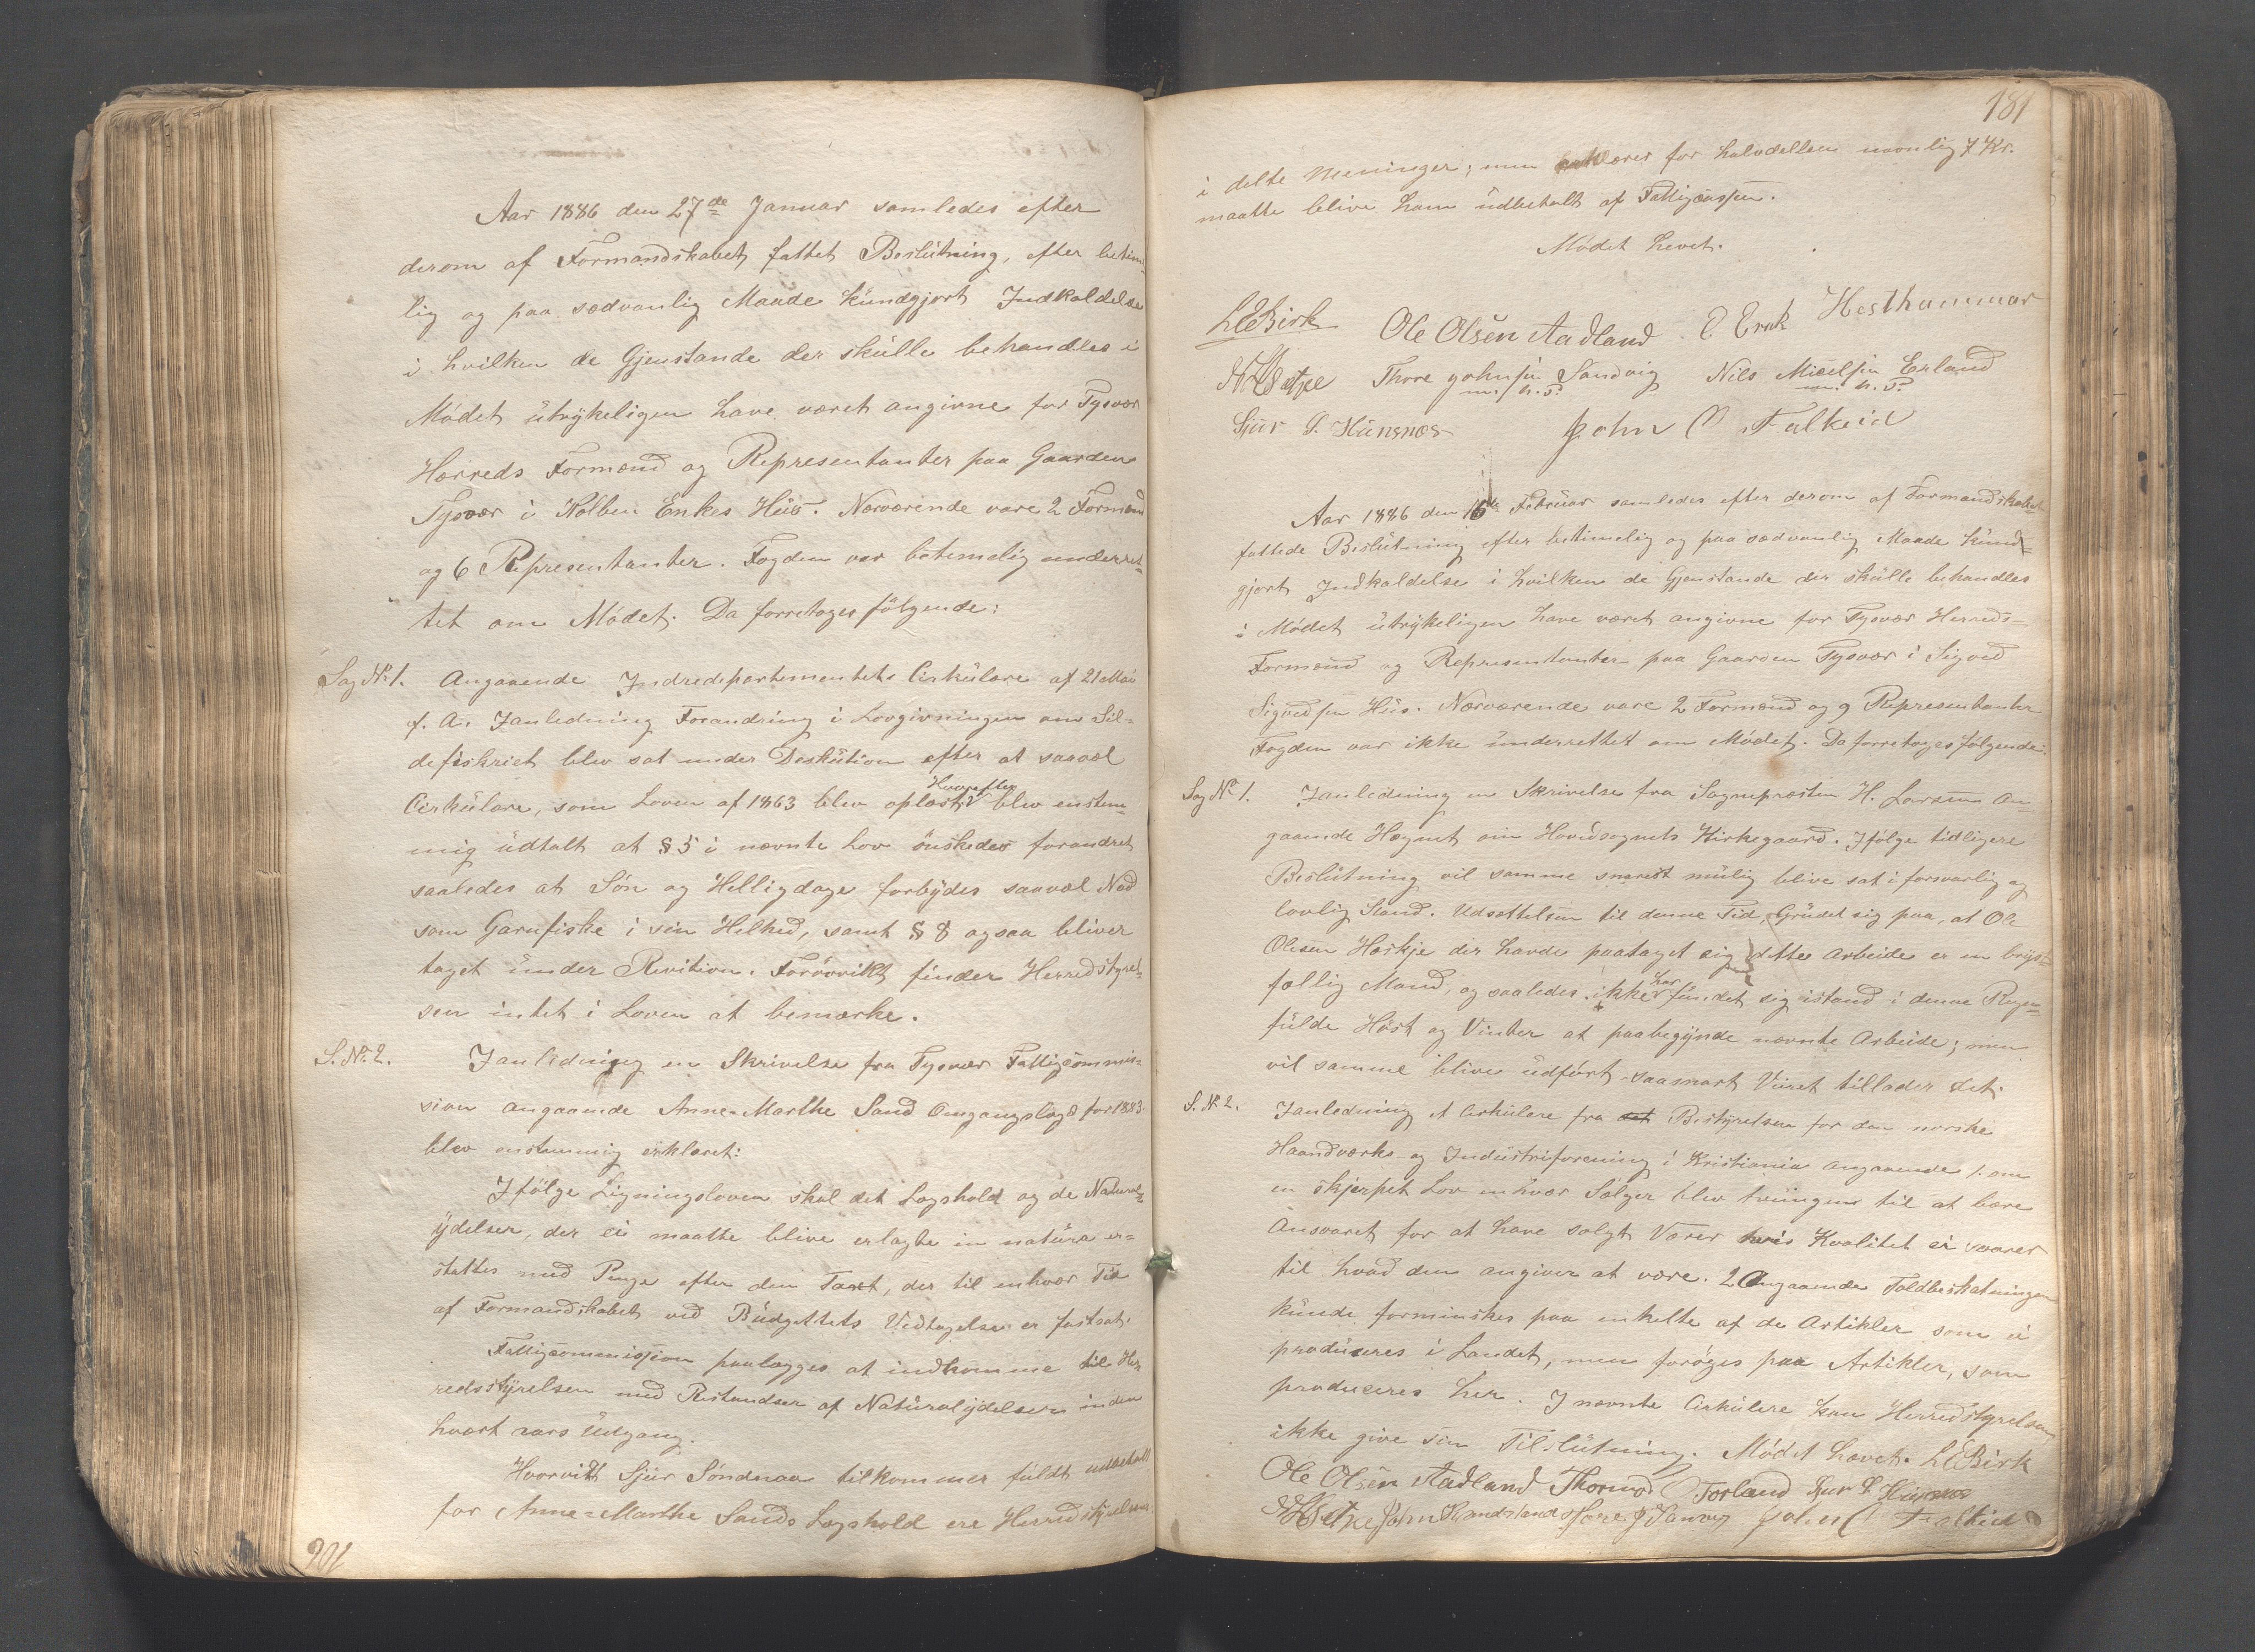 Aar 1886 den 27de Januar samledes efter
derom af Formandskabet fattet Beslutning, efter betime-
lig og paa sædvanlig Maade kundgjort Indkaldelse
i hvilken de Gjenstande der skulle behandles i
Mødet utrykeligen have været angivne for Tysvær
Herreds Formænd og Representanter paa Gaarden
Tysvær i Kolben Enkes Hus. Nærværende vare 2 Formænd
og 6 Representanter. Fogden var betimelig underret-
tet om Mødet. Da forretoges følgende:
Sag No 1. Angaaende Indredepartementets Cirkulære af 21 Mai
f. A. Janledning Forandring i Lovgivningen om Sil-
defiskriet blev sat under Deskution efter at saavæl
Hvorefter
Cirkulære, som Loven af 1863 blev oplæst blev enstem-
mig udtalt at § 5 i nævnte Lov ønskedes forandret
saaledes at Søn og Helligdage forbydes saavæl Nod
som Garnfiske i sin Helhed, samt § 8 ogsaa bliver
taget under Revition. Forøvrikt finder Herredstyrel-
sen intet i Loven at bemærke.
S. No 2. Janledning en Skrivelse fra Tysvær Fattigcommis-
sion angaaende Anne-Marthe Sand Omgangslægd for 1883
blev enstemmig erklæret:
Ifølge Ligningsloven skal det Lægshold og de Natural-
ydelser, der ei maatte blive erlagte in natura er-
stattes med Penge efter den Taxt, der til enhver Tid
af Formandskabet ved Budgettets Vedtagelse er fastsat.
Fattigcommissjion paalægges at indkomme til Her-
redsstyrelsen med Restandser af Naturalydelser inden
hvært aars Udgang.
Hvorvidt Sjur Søndnaa tilkommer fuldt udbetalt
for Anne-Marthe Sands Lægshold ere Herredstyrelsen
206
181
i delte Meninger; men for halvdellen navnlig 7 Kr.
maatte blive ham udbetalt af Fattigcassen.
Mødet hevet.
LEBirk Ole Olsen Aadland. E. Erik Hesthammar
Thore Johnsen Sandvig Nils Micelsen Erland
m. f. P. m. h. P.
Sjur S. Hunsnes John C Falkeid
Aar 1886 den 16de Februar samledes efter derom af Formandskabet
fattede Beslutning efter betimelig og paa sædvanlig Maade kund-
gjort Indkaldelse i hvilken de Gjenstande der skulle behandles
i Mødet utrykeligen have været angivne for Tysvær Herreds-
Formænd og Representanter paa Gaarden Tysvær i Sigved
Sigvedsen Hus. Nærværende vare 2 Formænd og 9 Representanter
Fogden var ikke underrettet om Mødet. Da forretoges følgende:
Sag No 1. Janledning en Skrivelse fra Sognepræsten H. Larsen An-
gaaende Hægnet om Hovedsognets Kirkegaard. Ifølge tidligere
Beslutning vil samme snarest mulig blive sat i forsvarlig og
lovlig Stand. Udsættelsen til denne Tid, Grudet sig paa, at Ole
Olesen Haskje der havde paataget sig dette Arbeide er en bryst-
har
fællig Mand, og saaledes ikke fundet sig istand i denne Regn-
fulde Høst og Vinter at paabegynde nævnte Arbeide; men
vil samme blive udført saasnart Veiret tillader det.
S. No 2. Janledning et Cirkulere fra det Bestyrelsen for den norske
Haandværks og Industriforening i Kristiania angaaende 1. om
en skjerpet Lov enhver Sælger blev tvungen til at bære
Ansvaret for at have solgt Varer hvis Kvalitet ei svarer
til hvad den angives at være. 2 Angaaende Toldbeskatningen
kunde forminskes paa enkelte af de Artikler som ei
produseres i Landet, men forøges paa Artikler, som
produceres her. I nævnte Cirkulere kan Herredstyrelsen
ikke give sin Tilslutning. Mødet hævet. LEBirk
Ole Olsen Aadland Thormod Forland Sjur S. Hunsnes
John Thore J Sanvig John C Falkeid